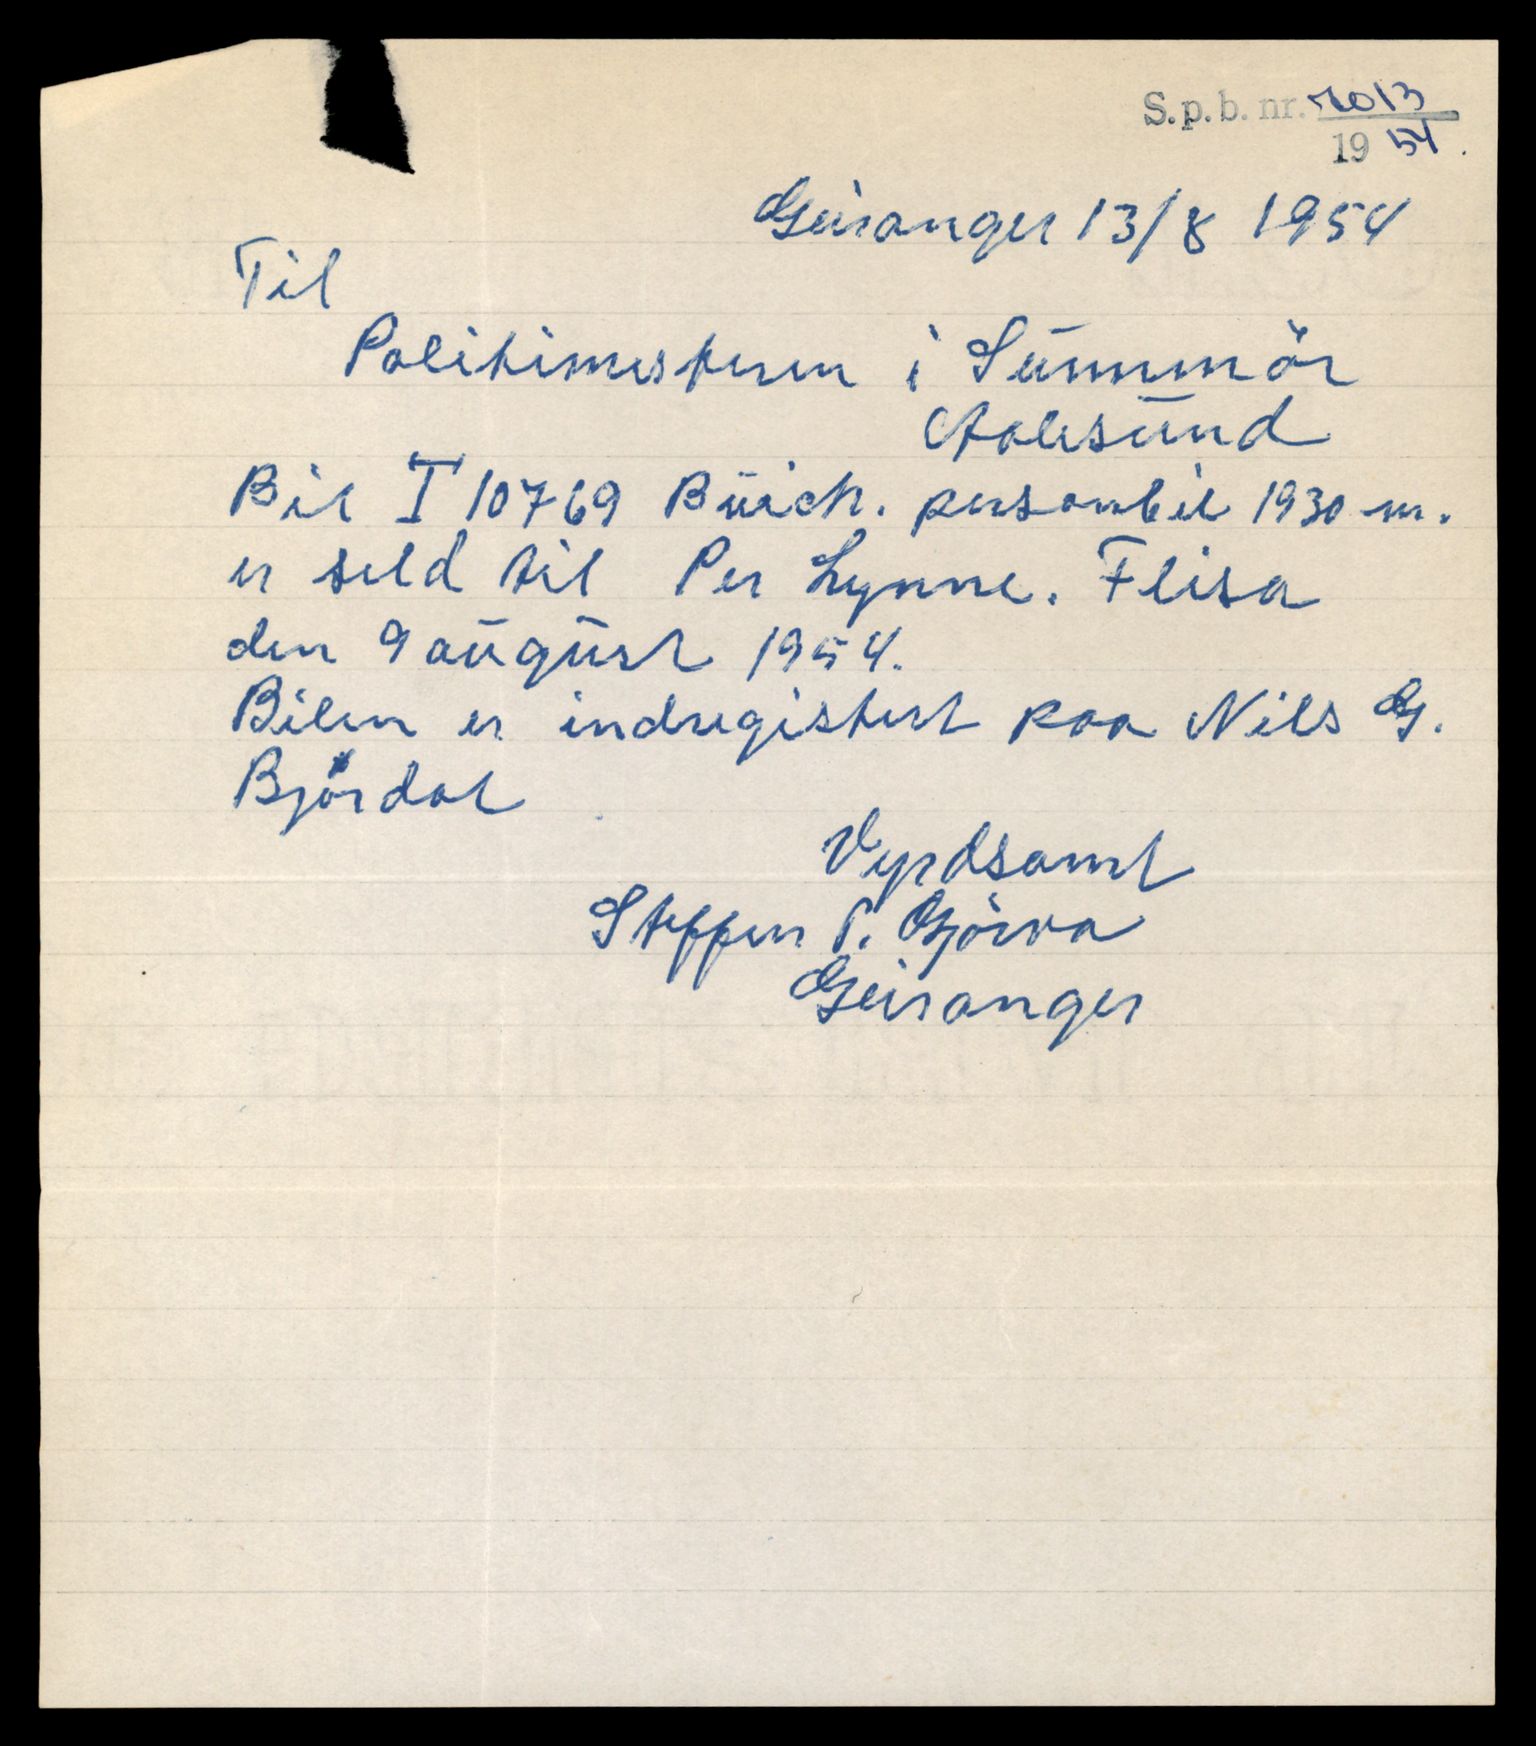 S.p.b. nr. 7013
19 54.
Geiranger 13/8 1954
Til
Politimesteren i Sunnmör
Aalesund
Bil T 10769 Buick. personbil 1930 m.
er seld til Per Lynne. Flisa
den 9 august 1954.
Bilen er indregistert paa Nils G.
Björdal
Vyrdsamt
Steffen P. Gjörva
Geiranger